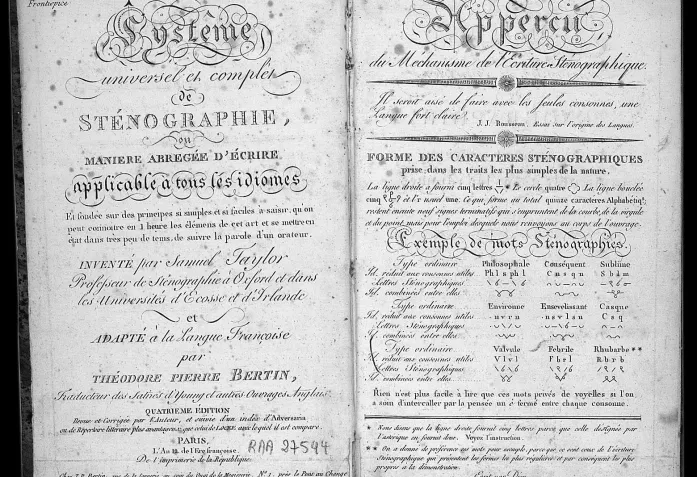 Frontispice
Système
universel et complet
de
STÉNOGRAPHIE,
ou
MANIERE ABREGÉE D'ÉCRIRE
applicable à tous les idiomes
Et fondée sur des principes si simples et si faciles à saisir, qu'on
peut connoitre en 1 heure les élémens de cet art et se mettre en
état dans très peu de tems, de suivre la parole d'un orateur.
INVENTÉ par Samuel Taylor
Professeur de Sténographie à Oxford et dans
les Universités d'Ecosse et d'Irlande
et
ADAPTÉ à la Langue Françoise
par
THÉODORE PIERRE BERTIN,
Traducteur des Satires d'Young et autres Ouvrages Anglais.
QUATRIEME EDITION
Revue et Corrigée par l'Auteur, et suivie d'un index d'Adversaria
ou de Répertoire littéraire plus avantageux que celui de LOCKE auquel il est comparé.
PARIS,
L'An de l'Ere françoise
De l'imprimerie de la République.
RAA 27544
Apperçu
du Méchanisme de l'Ecriture Sténographique.
Il seroit aisé de faire avec les seules consonnes, une
Langue fort claire.
J. J. Rousseau, Essai sur l'origine des Langues.
FORME DES CARACTERES STÉNOGRAPHIQUES
prise dans les traits les plus simples de la nature.
La ligne droite a fourni cinq lettres * Le cercle quatre La ligne bouclée
cinq et l'x usuel une. Ce qui forme au total quinze caracteres Alphabétiqs
restent ensuite neuf signes terminatifs qui s'empruntent de la courbe, de la virgule
et du point, mais pour l'emploi desquels nous renvoyons au corps de l'ouvrage.
Exemple de mots Sténographiés.
Type ordinaire Philosophale Conséquent Sublime
Id. réduit aux consonnes utiles Phlsphl Cnsqn Sblm
Lettres Sténographiques
Id. combinées entre elles
Type ordinaire Environne Ensevelissant Casque
Id. réduit aux consonnes utiles nvrn nsvlsn Csq
Lettres Sténographiques
Id. combinées entre elles
Type ordinaire Valvule Febrile Rhubarbe **
Id. réduit aux consonnes utiles Vlvl Fbrl Rbrb
Lettres Sténographiques
Id. combinées entre elles
Rien n'est plus facile à lire que ces mots privés de voyelles si l'on
a soin d'intercaller par la pensée un é fermé entre chaque consonne.
* Nous disons que la ligne droite fournit cinq lettres, parce que celle désignée par
l'astérique en fournit deux. Voyez l'instruction.
** On a donné de préférence ces mots pour exemple, parce que ce sont ceux de l'écriture
Sténographique qui présentent les formes les plus régulieres et par conséquent les plus
propres à la démonstration.